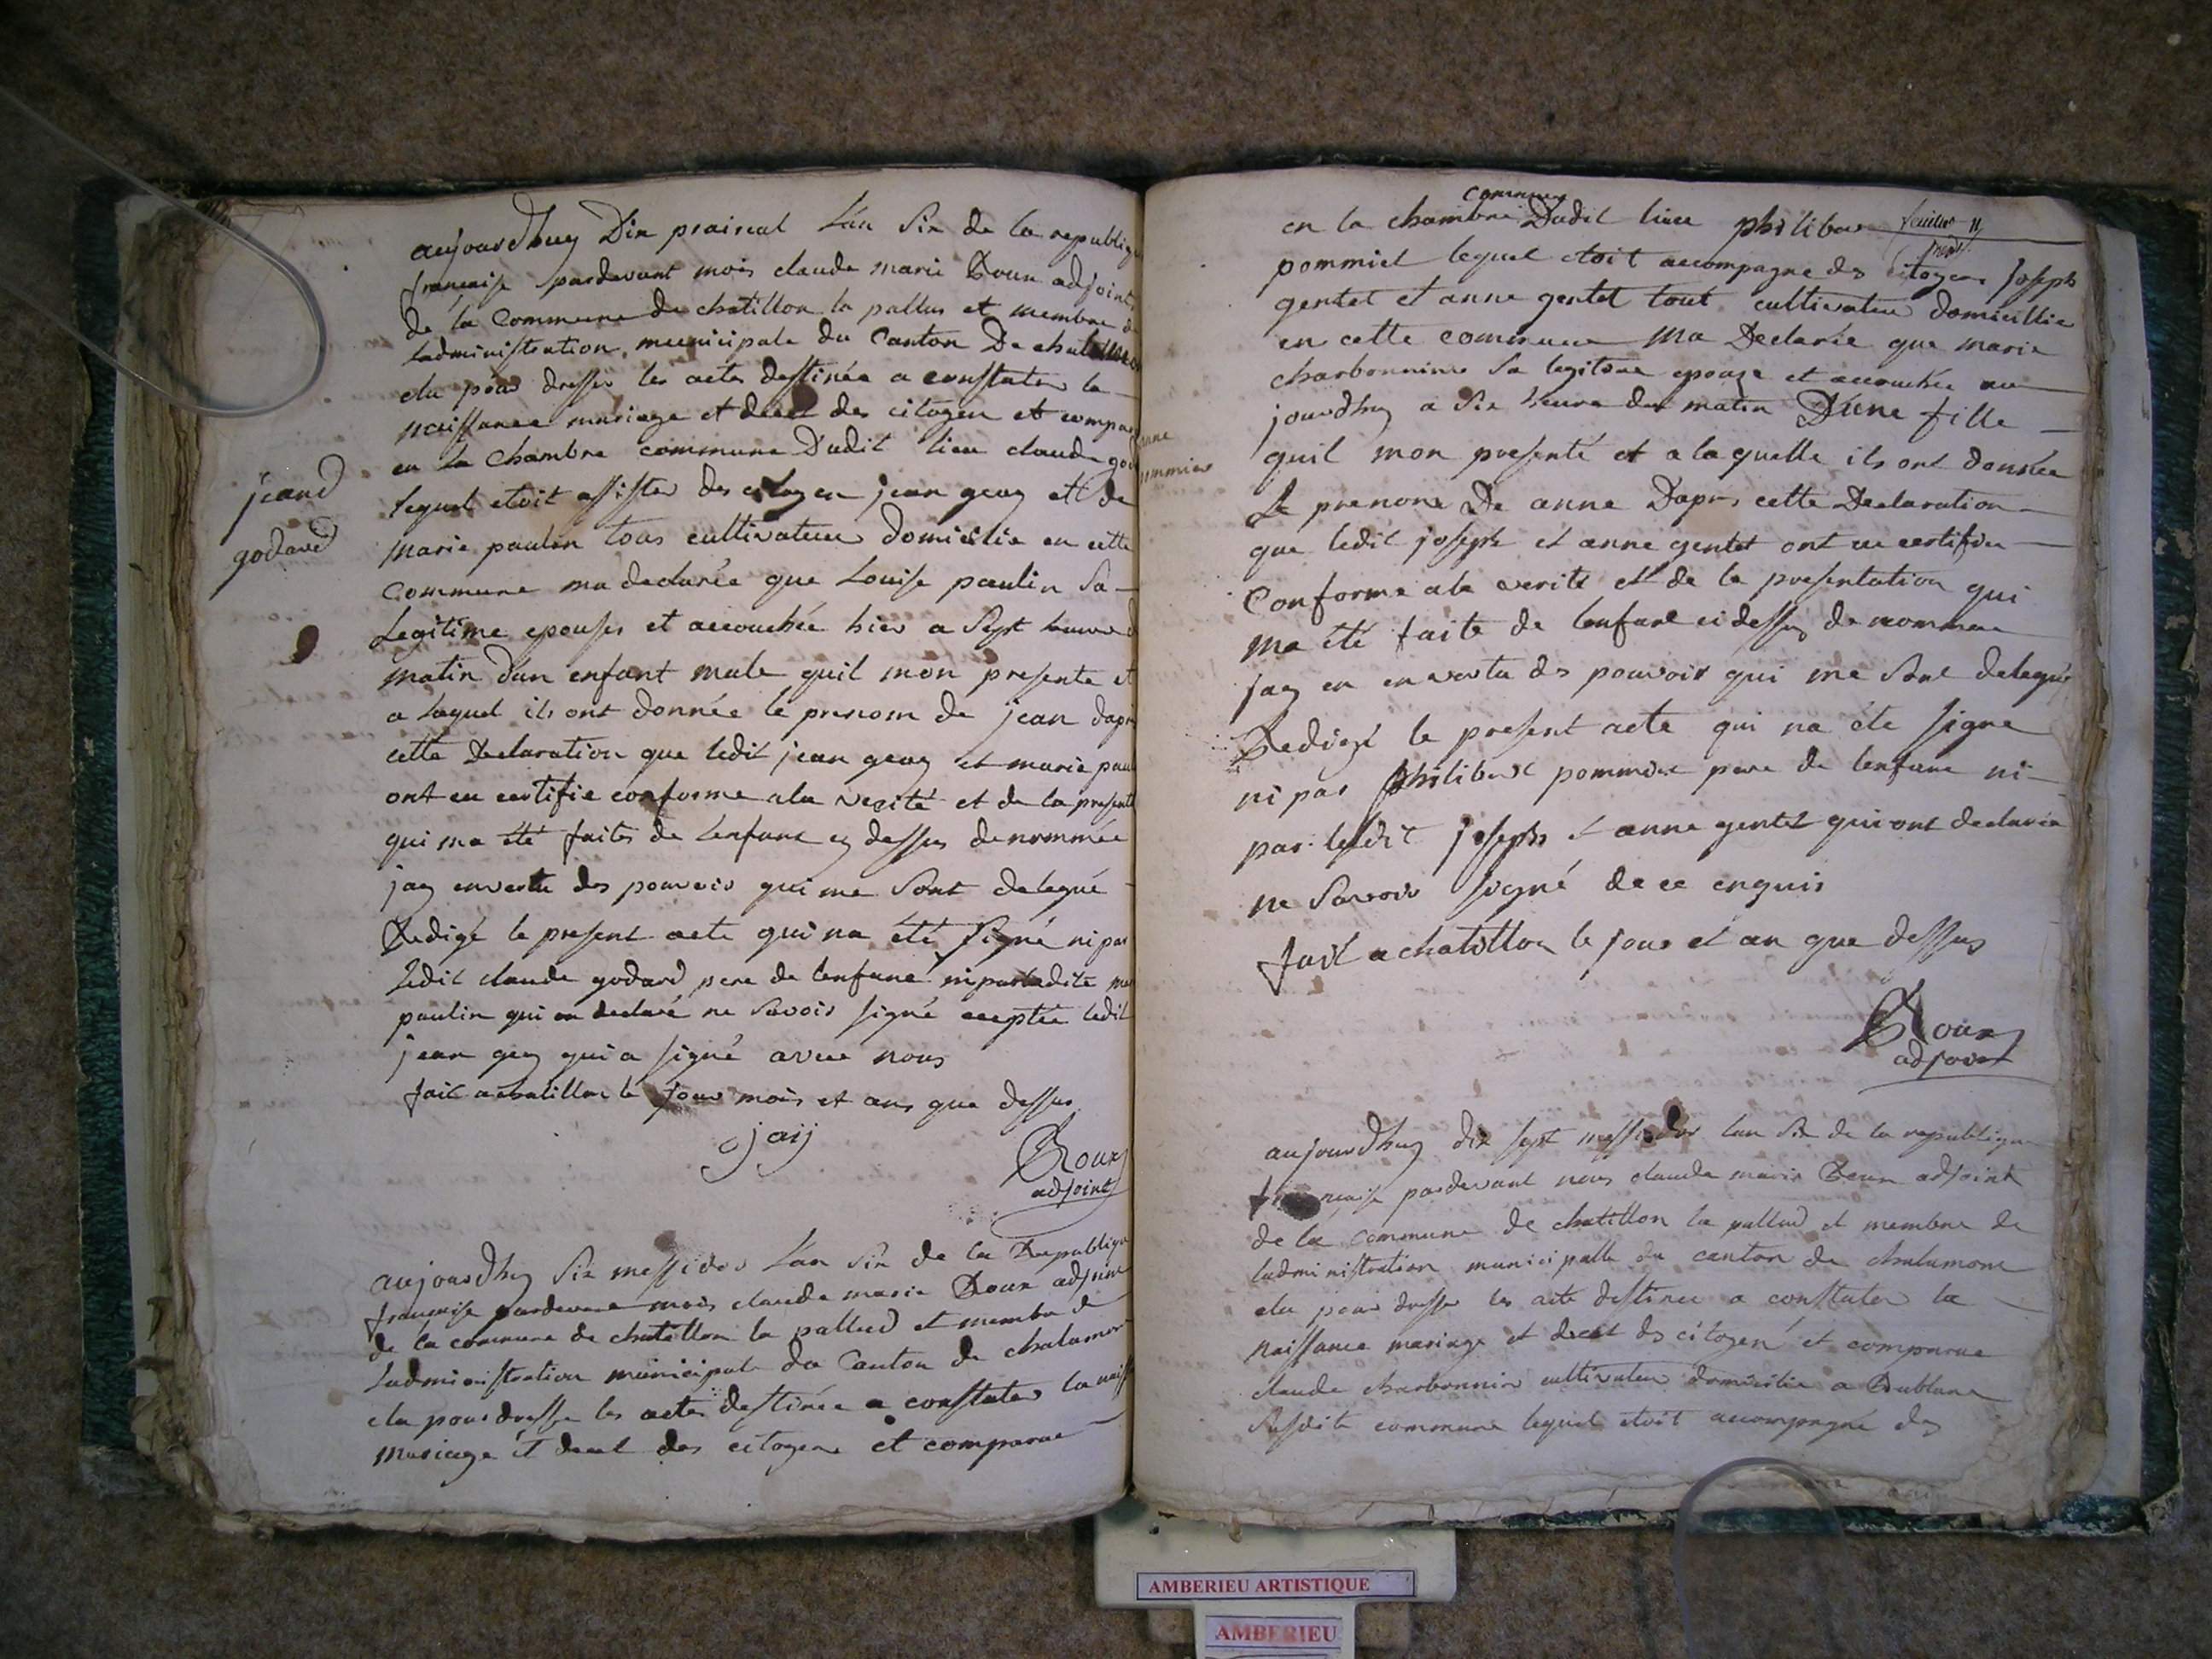 aujourdhuy Dix prairial L'an Six de la republiq
française pardevant mois claude marie Roux adjoint
de la Commune de chatillon la pallus et membre d
Ladministration municipale du Canton De
elu pour dresser les actes destinée a constater la
naissance mariage et deces des citoyen et compar
en la Chambre commune Dudit lieu claude god
jean
godard
lequel etoit assister des citoyen jean geay et de
marie paulin tous cultivateur domicilie en cette
commune ma declarée que Louise paulin Sa
Legitime epouses et accouchée hier a Sept heure d
matin d'un enfant male quil mon presente et
a Laquel ils ont donnée le prenom de jean dapr
cette Declaration que ledit jean geay et marie paul
ont eu certifie conforme ala verité et de la present
qui ma été faites de Lenfant cy dessus denommée
jay envertu des pouvoir qui me Sont delegué
Redigé le present acte qui na été Signé ni par
Ledit claude godard pere de lenfant ni par ladite ma
paulin qui on declaré ne Savoir signé ecepté ledit
jean geay qui a signé avec nous
fait a chatillon le jour mois et ans que dessus
jaij
Roux
adjoint
aujourdhuy Six messidor L'an Six de la Republiqu
française pardevant mois claude marie Roux adjoint
de la commune de chatillon la pallud et membre de
Ladministration municipale du Canton de chalamon
elu pour dresse les actes destinée a constater la naiss
mariage et decest des citoyens et comparue
anne
ommier
en la chambre commune Dudit lieu philiber
pommiet lequel etoit accompagne des citoyen Joseph
gentet et anne gentet tout cultivateur domicillie
en cette commune Ma Declarée que marie
charbonnine Sa legitime epouze et accouchée au
jourdhuy a Six heure du matin D'une fille
quil mon presenté et a laquelle ils ont donnée
Le prenom De anne Dapres cette Declaration
que ledit joseph et anne gentet ont eu certifier
Conforme ala verité et de la presentation qui
ma été faite de lenfant ci dessus denomme
jay en envertu des pouvoir qui me Sont delegué
Redigé le present acte qui na éte signe
ni par philibert pommier pere de lenfant ni
par lesdit joseph et anne gentet qui ont declarée
ne Savoir signé de ce enquis
fait a chatillon le jour et an que dessus
Roux
adjoint
aujourdhuy dix sept messidor lan Six de la republique
française pardevant nous claude marie Roux adjoint
de la commune de chatillon la pallud et membre de
ladministration municipalle du canton de chalamont
elu pour dresser les acte destinee a constater la
naissance mariage et decest des citoyen et comparue
claude charbonnin cultivateur domicilie a Bublane
Susdite commune lequel etoit accompagné des
AMBERIEU ARTISTIQUE
AMBERIEU